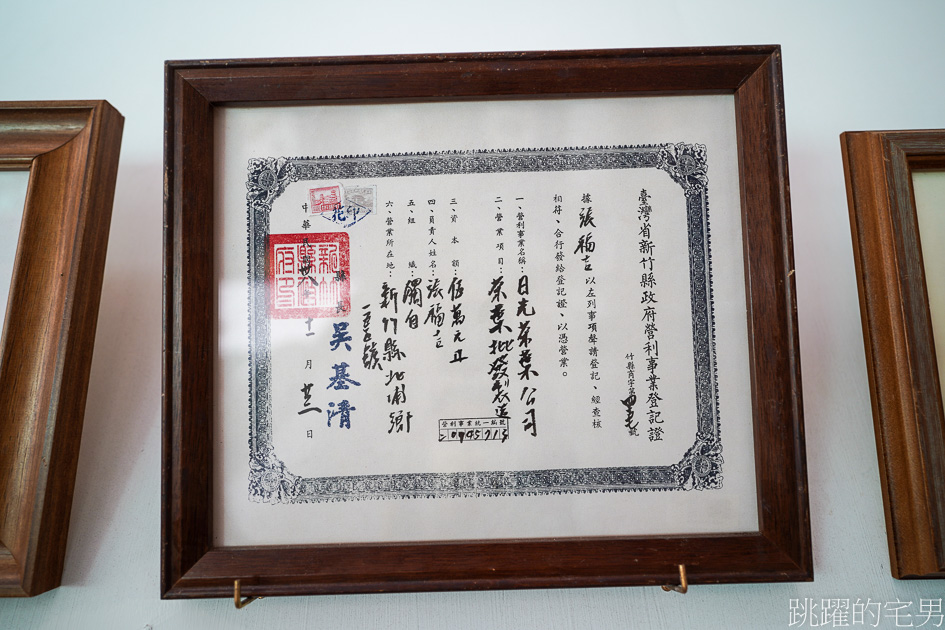 臺灣省新竹縣政府營利事業登記證
竹縣商字第號
據張福吉以左列事項聲請登記、經查核
相符、合行發給登記證、以憑營業。
一、營利事業名稱：日光茶葉公司
二、營業項目：茶葉批發製造
營利事業統一編號
三、資本額：伍萬元正
四、負責人姓名：張福吉
五、組織：獨自
六、營業所在地：新竹縣北埔鄉
縣長吳基清
中華月日
印花
跳躍的宅男